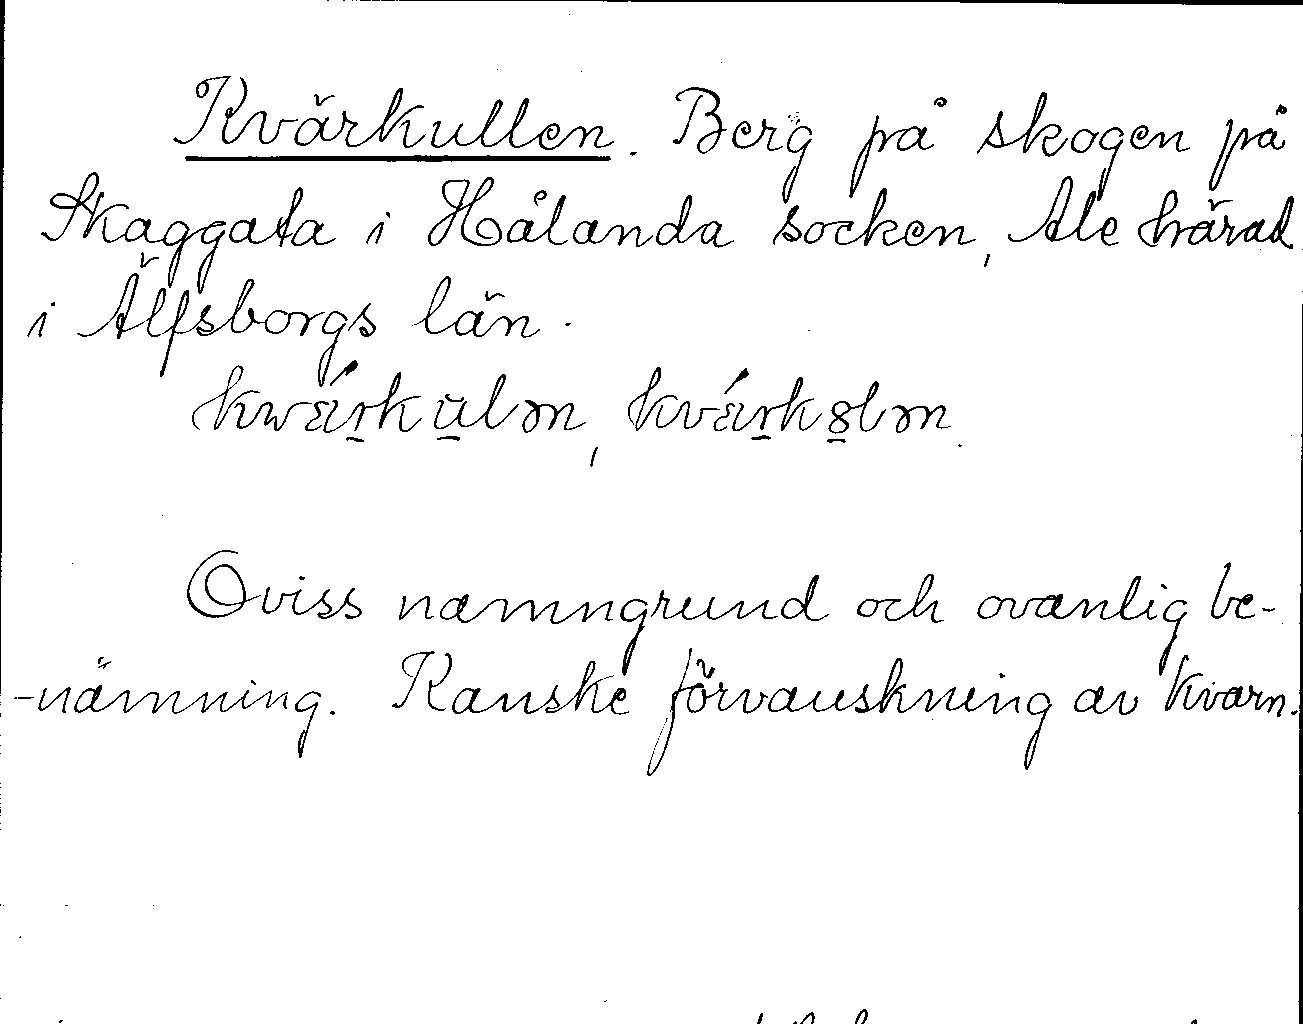 Kvärkullen. Berg på skogen på
Skaggata i Hålanda socken, Ale härad
i Älfsborgs län.
Oviss namngrund och ovanlig be-
-nämning. Kanske förvanskning av kvarn.